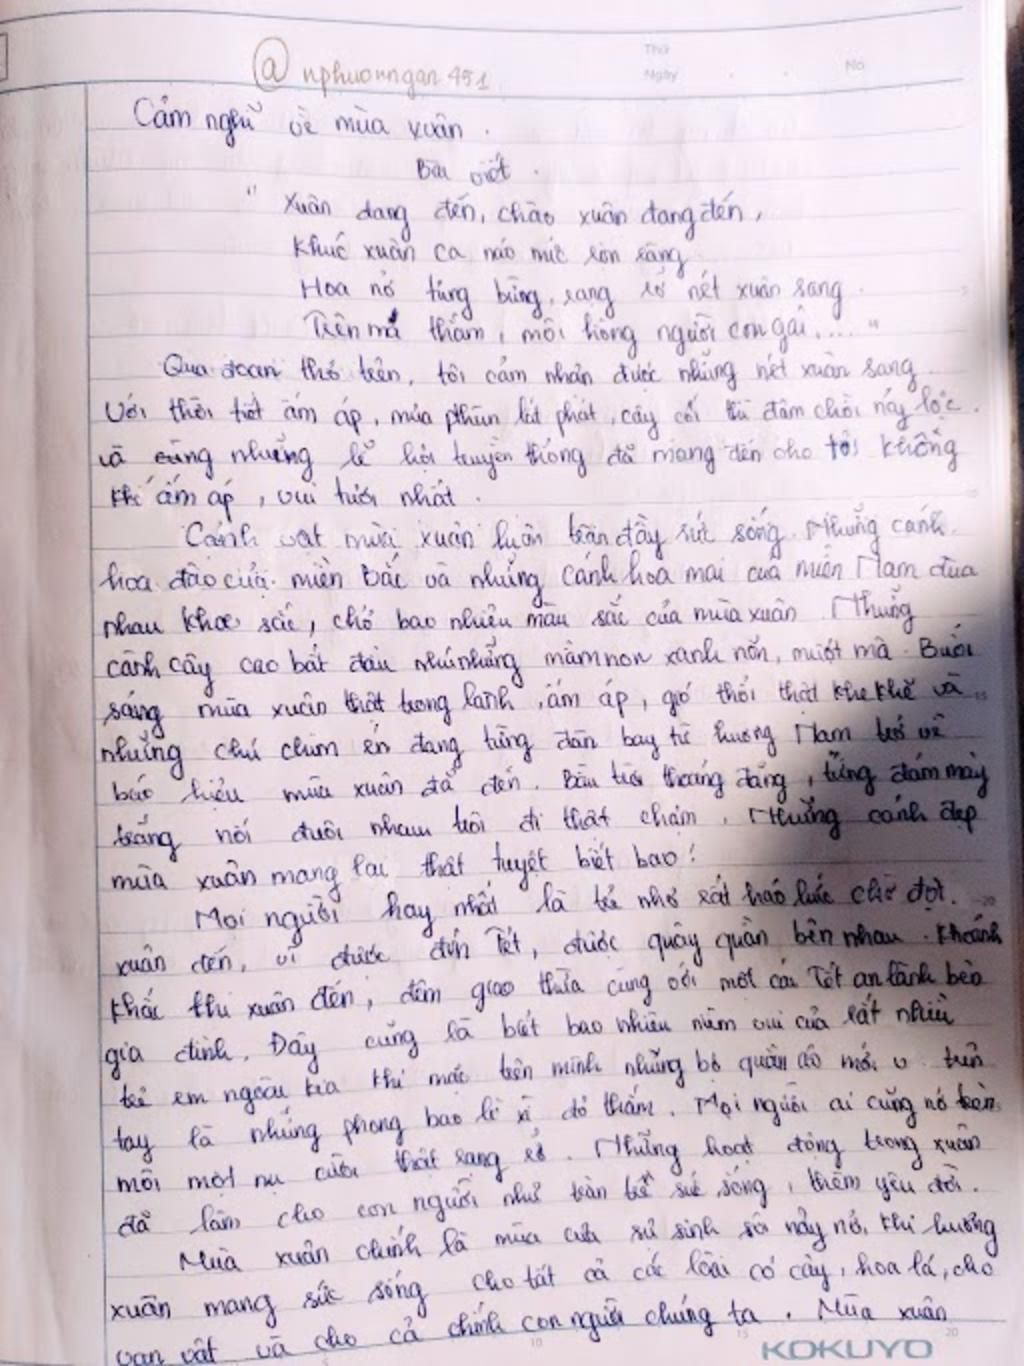 @ nphuonngan451
Thứ
Ngày
No
Cảm nghĩ về mùa xuân.
Bài viết.
" Xuân đang đến, chào xuân đang đến,
Khúc xuân ca náo nức rộn ràng
Hoa nở tưng bừng, rạng rỡ nét xuân sang.
Trên má thắm, môi hồng người con gái...."
Qua đoạn thơ trên, tôi cảm nhận được những nét xuân sang.
Với thời tiết ấm áp, mưa phùn lất phất, cây cối thì đâm chồi nảy lộc.
và cùng những lễ hội truyền thống đã mang đến cho tôi không
khí ấm áp, vui tươi nhất.
Cảnh vật mùa xuân luôn tràn đầy sức sống. Những cánh
hoa đào của miền Bắc và những cánh hoa mai của miền Nam đua
nhau khoe sắc, chở bao nhiêu màu sắc của mùa xuân. Những
cành cây cao bắt đầu nhú những mầm non xanh nõn, mượt mà. Buổi
sáng mùa xuân thật trong lành, ấm áp, gió thổi thật khe khẽ và
những chú chim én đang từng đàn bay từ hương Nam trở về
báo hiệu mùa xuân đã đến. Bầu trời thoáng đãng, từng đám mây
trắng nối đuôi nhau trôi đi thật chậm. Những cảnh đẹp
mùa xuân mang lại thật tuyệt biết bao!
Mọi người hay nhất là trẻ nhỏ rất háo hức chờ đợi.
xuân đến, vì được đón Tết, được quây quần bên nhau. Khoảnh
khắc khi xuân đến, đêm giao thừa cùng với một cái Tết an lành bên
gia đình. Đây cũng là biết bao nhiêu niềm vui của rất nhiều
trẻ em ngoài kia khi mặc trên mình những bộ quần áo mới và trên
tay là những phong bao lì xì đỏ thắm. Mọi người ai cũng nở trên
môi một nụ cười thật rạng rỡ. Những hoạt động trong xuân
đã làm cho con người như tràn trề sức sống, thêm yêu đời.
Mùa xuân chính là mùa của sự sinh sôi nảy nở, khi hương
xuân mang sức sống cho tất cả các loài cỏ cây, hoa lá, cho
vạn vật và cho cả chính con người chúng ta. Mùa xuân
KOKUYO